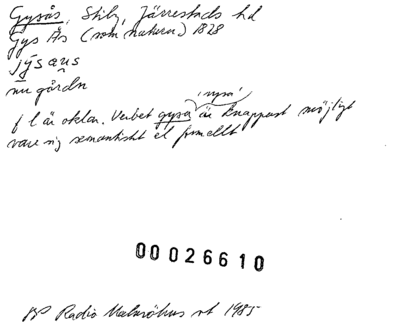 Gysås, Stiby, Järrestads hd
Gys Ås (som natura) 1828
jȳsaus
nu gården
'nysa'
f l är oklar. Verbet gysa är knappast möjligt
vare sig semantiskt el formellt
00026610
BP Radio Malmöhus vt 1985